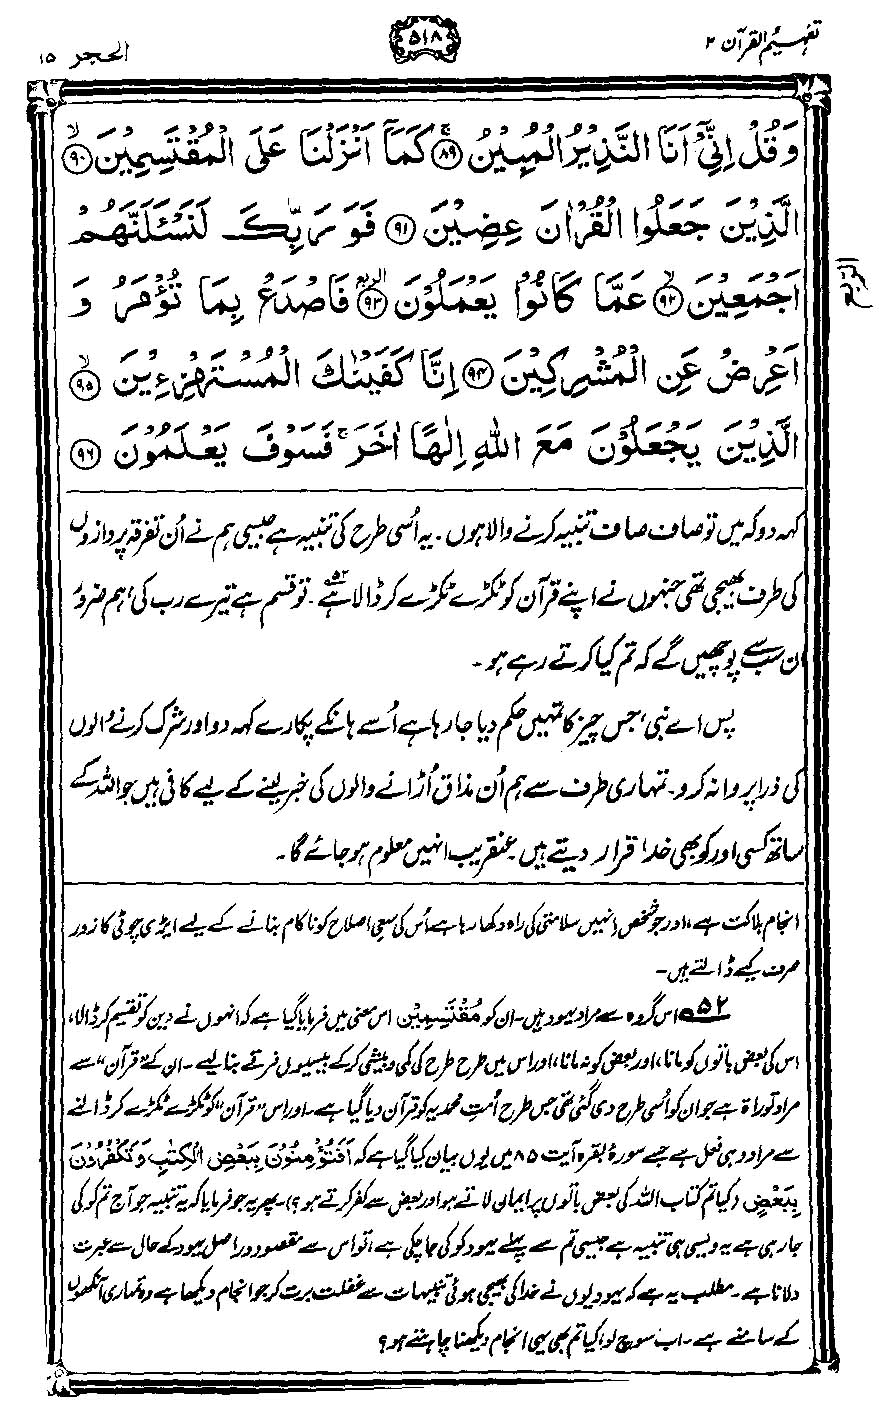 تفہیم القرآن ۲
۵۱۸
الحجر ۱۵
وَقُلْ اِنِّیْۤ اَنَا النَّذِیْرُ الْمُبِیْنُ ﴿۸۹﴾ۚ كَمَاۤ اَنْزَلْنَا عَلَی الْمُقْتَسِمِیْنَ ﴿۹۰﴾ۙ
الَّذِیْنَ جَعَلُوا الْقُرْاٰنَ عِضِیْنَ ﴿۹۱﴾ فَوَ رَبِّكَ لَنَسْـَٔلَنَّهُمْ
اَجْمَعِیْنَ ﴿۹۲﴾ۙ عَمَّا كَانُوْا یَعْمَلُوْنَ ﴿۹۳﴾ الربع فَاصْدَعْ بِمَا تُؤْمَرُ وَ
اَعْرِضْ عَنِ الْمُشْرِكِیْنَ ﴿۹۴﴾ اِنَّا كَفَیْنٰكَ الْمُسْتَهْزِءِیْنَ ﴿۹۵﴾ۙ
الَّذِیْنَ یَجْعَلُوْنَ مَعَ اللّٰهِ اِلٰهًا اٰخَرَ ۚ فَسَوْفَ یَعْلَمُوْنَ ﴿۹۶﴾
الربع
کہہ دو کہ میں تو صاف صاف تنبیہ کرنے والا ہوں۔ یہ اُسی طرح کی تنبیہ ہے جیسی ہم نے اُن تفرقہ پردازوں
کی طرف بھیجی تھی جنہوں نے اپنے قرآن کو ٹکڑے ٹکڑے کر ڈالا ہے۵۲۔ تو قسم ہے تیرے رب کی، ہم ضرور
ان سب سے پوچھیں گے کہ تم کیا کرتے رہے ہو۔
پس اے نبیؐ، جس چیز کا تمہیں حکم دیا جا رہا ہے اُسے ہانکے پکارے کہہ دو اور شرک کرنے والوں
کی ذرا پروا نہ کرو۔ تمہاری طرف سے ہم اُن مذاق اُڑانے والوں کی خبر لینے کے لیے کافی ہیں جو اللہ کے
ساتھ کسی اور کو بھی خدا قرار دیتے ہیں۔ عنقریب انہیں معلوم ہو جائے گا۔
انجام ہلاکت ہے، اور جو شخص انہیں سلامتی کی راہ دکھا رہا ہے اُس کی سعیِ اصلاح کو ناکام بنانے کے لیے ایڑی چوٹی کا زور
صرف کیے ڈالتے ہیں۔
۵۲ اس گروہ سے مراد یہود ہیں۔ ان کو مُقْتَسِمِیْن اس معنی میں فرمایا گیا ہے کہ انہوں نے دین کو تقسیم کر ڈالا،
اس کی بعض باتوں کو مانا، اور بعض کو نہ مانا، اور اس میں طرح طرح کی کمی و بیشی کر کے بیسیوں فرقے بنا لیے۔ ان کے ”قرآن“ سے
مراد توراۃ ہے جو ان کو اُسی طرح دی گئی تھی جس طرح اُمتِ محمدیہ کو قرآن دیا گیا ہے۔ اور اس ”قرآن“ کو ٹکڑے ٹکڑے کر ڈالنے
سے مراد وہی فعل ہے جسے سورۂ بقرہ آیت ۸۵ میں یوں بیان کیا گیا ہے کہ اَفَتُؤْمِنُوْنَ بِبَعْضِ الْكِتٰبِ وَ تَكْفُرُوْنَ
بِبَعْضٍ (کیا تم کتاب اللہ کی بعض باتوں پر ایمان لاتے ہو اور بعض سے کفر کرتے ہو؟)۔ پھر یہ جو فرمایا کہ یہ تنبیہ جو آج تم کو کی
جا رہی ہے یہ ویسی ہی تنبیہ ہے جیسی تم سے پہلے یہود کو کی جا چکی ہے، تو اس سے مقصود دراصل یہود کے حال سے عبرت
دلانا ہے۔ مطلب یہ ہے کہ یہودیوں نے خدا کی بھیجی ہوئی تنبیہات سے غفلت برت کر جو انجام دیکھا ہے وہ تمہاری آنکھوں
کے سامنے ہے۔ اب سوچ لو، کیا تم بھی یہی انجام دیکھنا چاہتے ہو؟